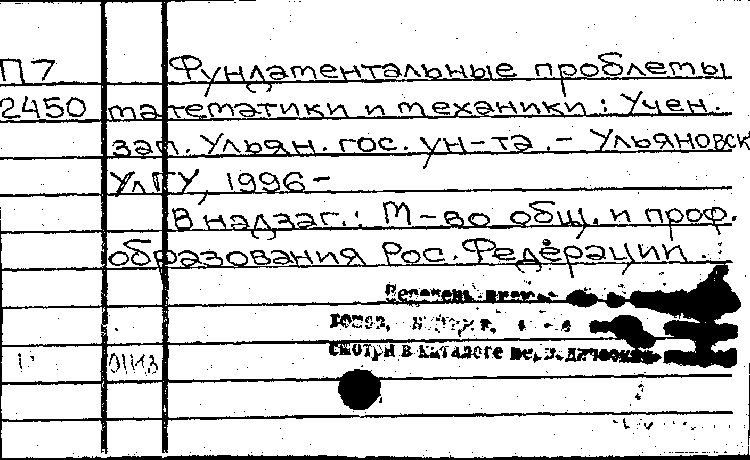 П7 Фундаментальные проблемы
2450 математики и механики : Учен.
зап. Ульян. гос. ун-та. - Ульяновск
УлГУ, 1996-
В надзаг.: М-во общ. и проф.
образования Рос. Федерации.
смотри в каталоге